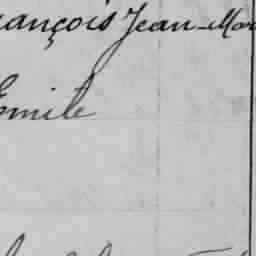 ançois Jean-Mar
Emile